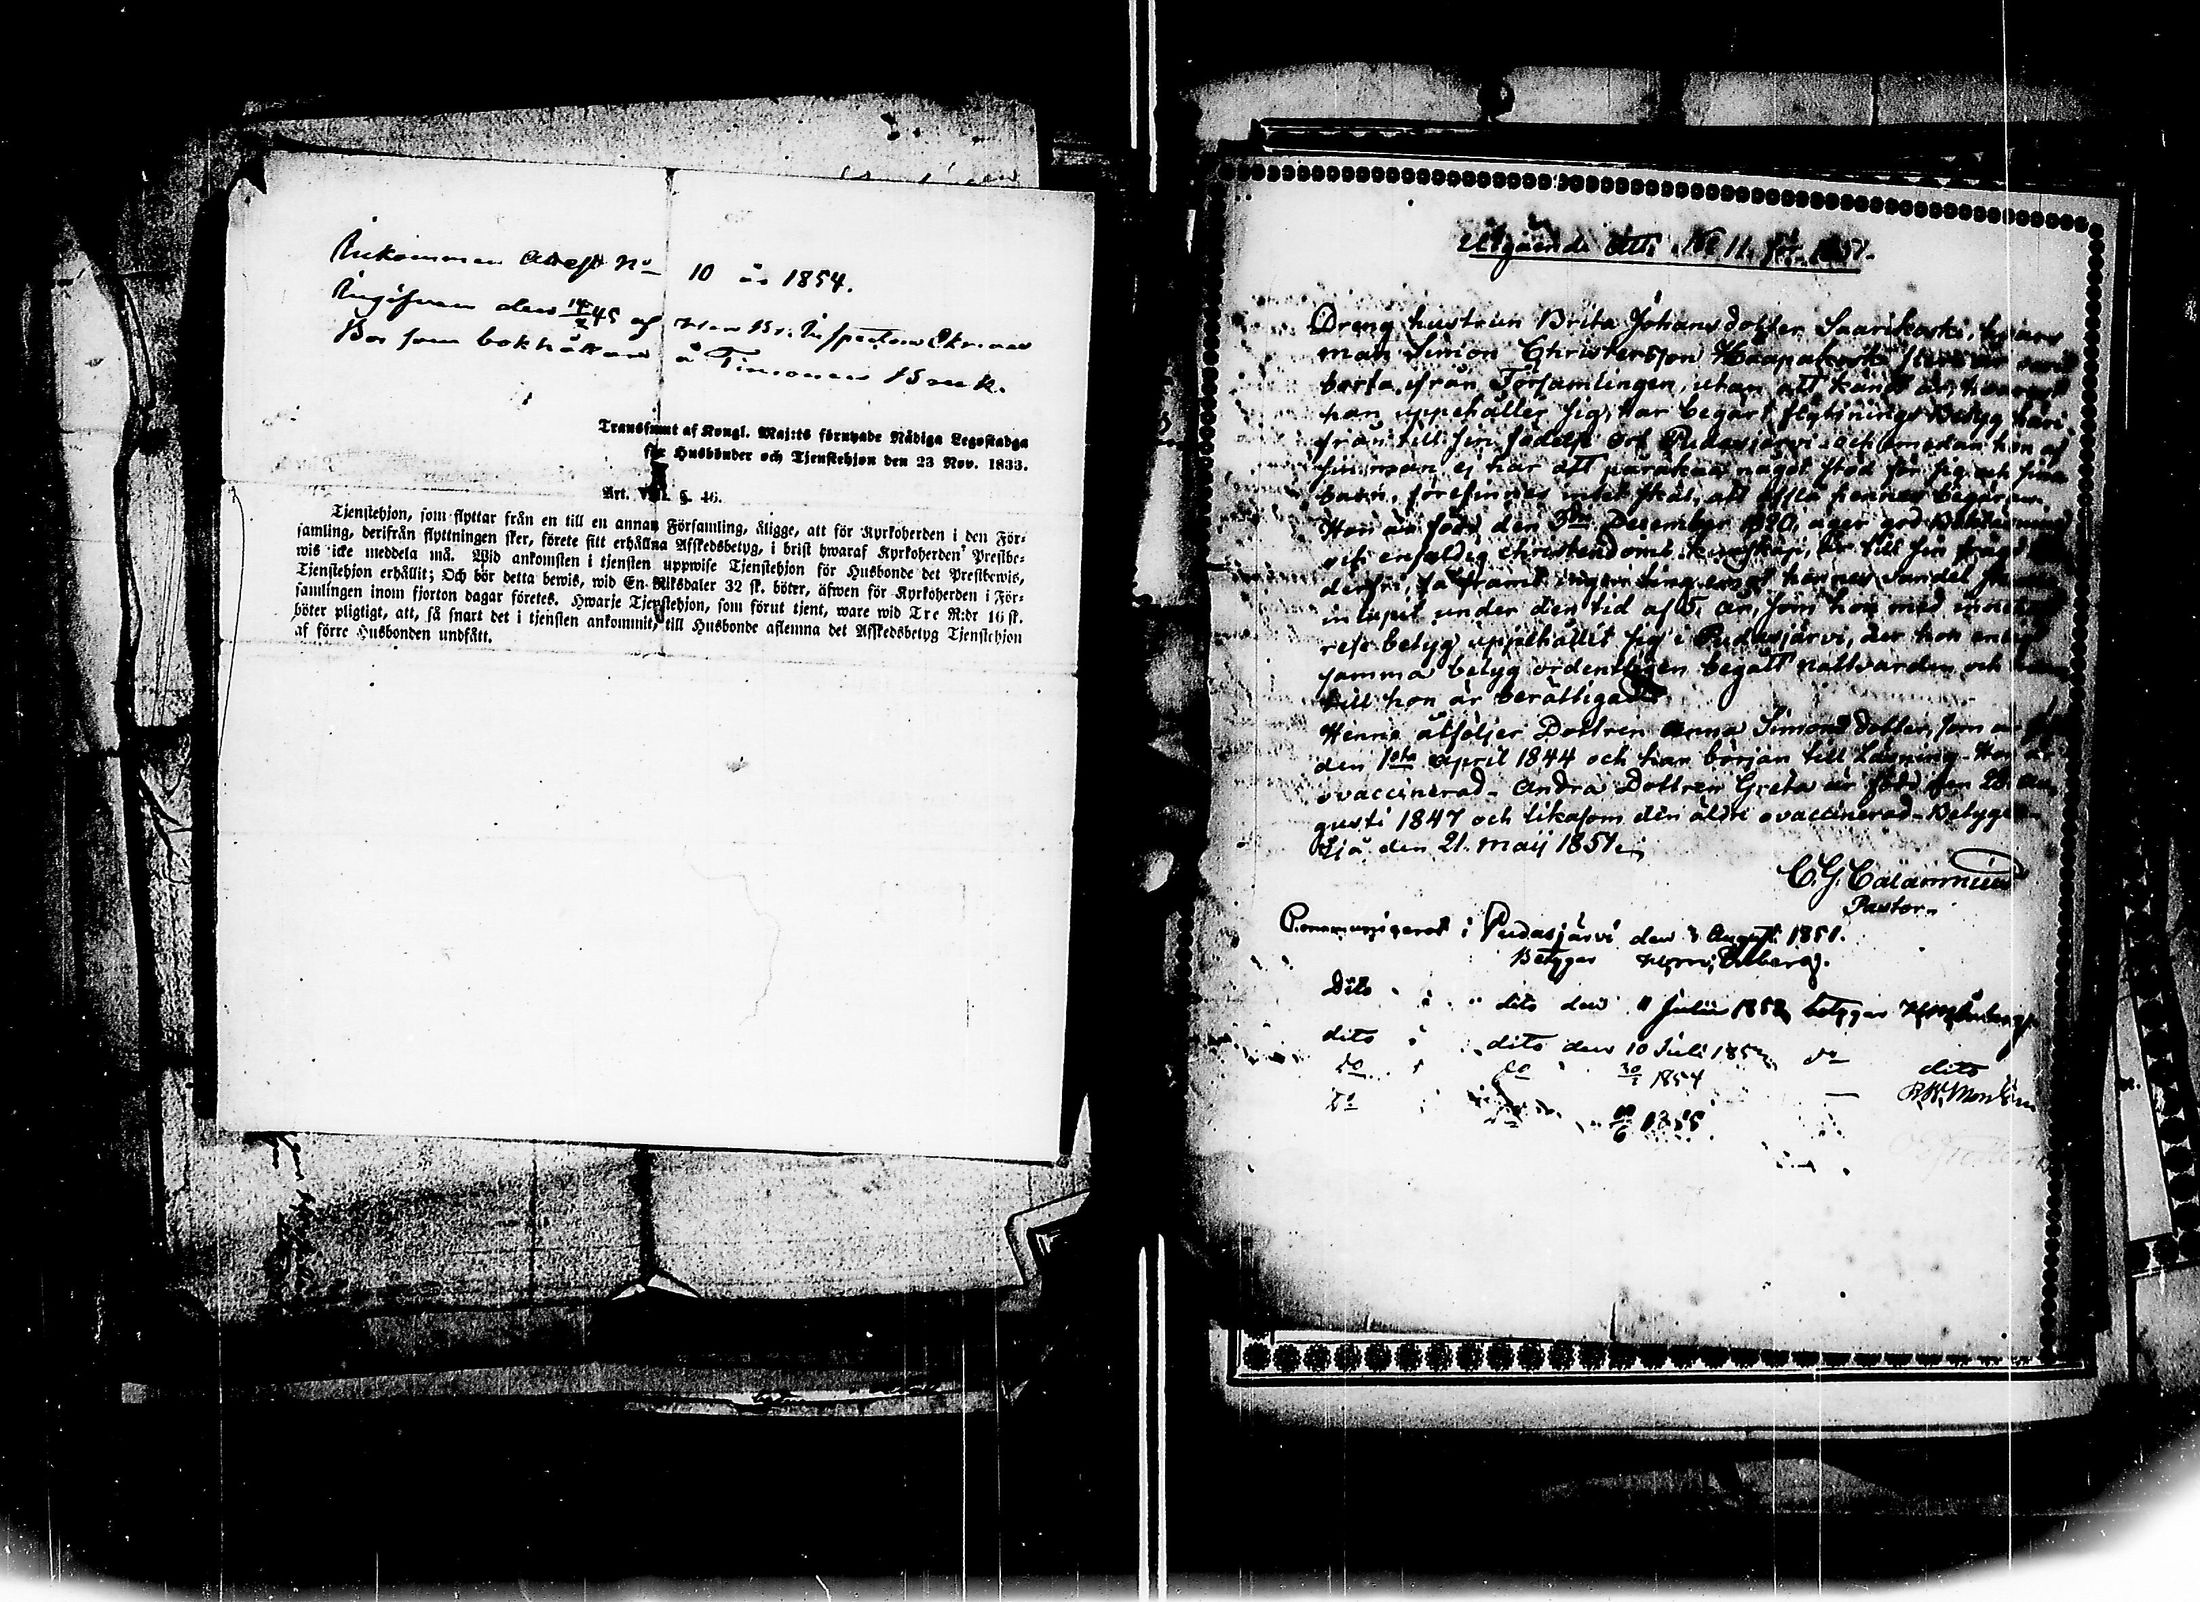 Ankommen attest No 10 år 1854.
Angifven den 14/2 45 af
Bor som bokhållare å Bruk.
Transsumt af Kongl. Maj:ts förnyade Nådiga Legostadga
för Husbönder och Tjenstehjon den 23 Nov. 1833.
Art. VIII. §. 46.
Tjenstehjon, som flyttar från en till en annan Församling, åligge, att för Kyrkoherden i den För-
samling, derifrån flyttningen sker, förete sitt erhållna Afskedsbetyg, i brist hwaraf Kyrkoherden Prestbe-
wis icke meddela må. Wid ankomsten i tjensten uppwise Tjenstehjon för Husbonde det Prestbewis,
Tjenstehjon erhållit; Och bör detta bewis, wid En Riksdaler 32 sk. böter, äfwen för Kyrkoherden i För-
samlingen inom fjorton dagar företes. Hwarje Tjenstehjon, som förut tjent, ware wid Tre R:dr 16 sk.
böter pligtigt, att, så snart det i tjensten ankommit, till Husbonde aflemna det Afskedsbetyg Tjenstehjon
af förre Husbonden undfått.
Utgående Att. No 11. för 1851.
Dreng hustrun Brita Johansdotter Saarikoski, hvars
man Simon Christersson Haapakoski flere år varit
borta från Församlingen, utan att känd är, hvarest
han uppehåller sig, har begärt flyttnings Betyg häri-
från till sin födelse ort Pudasjärvi och emedan hon af
sin man ej har att påräkna något stöd för sig och sina
barn, förefinnes intet skäl, att afslå hennes begäran.
Hon är född den 3dje December 1820, äger god Boklärning
och enfaldig christendoms kunskap, är till sin frägd
derfri, så framt ingenting emot hennes vandel
inlupit under den tid af 5 år, som hon med
rese betyg uppehållit sig i Pudasjärvi, der hon enligt
samma betyg ordentligen begått nattvarden och
till hon är berättigad.
Henne åtföljer Dottren Anna Simonsdotter, som är
den 1sta April 1844 och har början till Läsning. Hon är
ovaccinerad. Andra Dottren Greta är född den 28 Au-
gusti 1847 och likasom den äldre ovaccinerad. Betygar
Ijo den 21. Maij 1851.
C. G. Calamnius
Pastor.
Communicerat i Pudasjärvi den 3 August 1851.
Betygar
Dito i dito den 11 Julii 1852 betygar
dito i dito den 10 Juli 1853 do dito
do i do 30/7 1854
do i do 10/6 1855